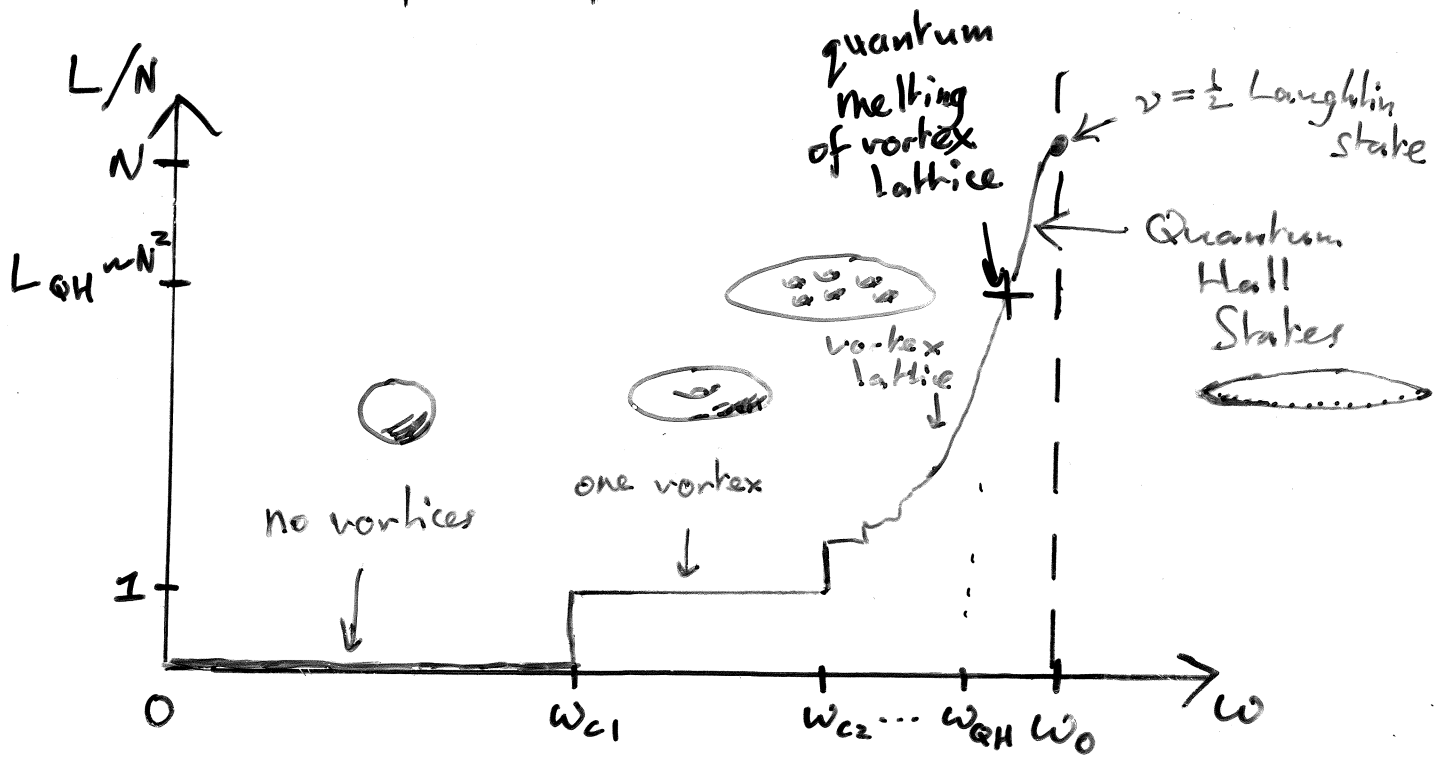 L/N
N
L_QH ~N²
1
0
quantum
melting
of vortex
lattice
ν = ½ Laughlin
state
Quantum
Hall
States
vortex
lattice
one vortex
no vortices
ω_c1
ω_c2 ... ω_QH ω_0
ω